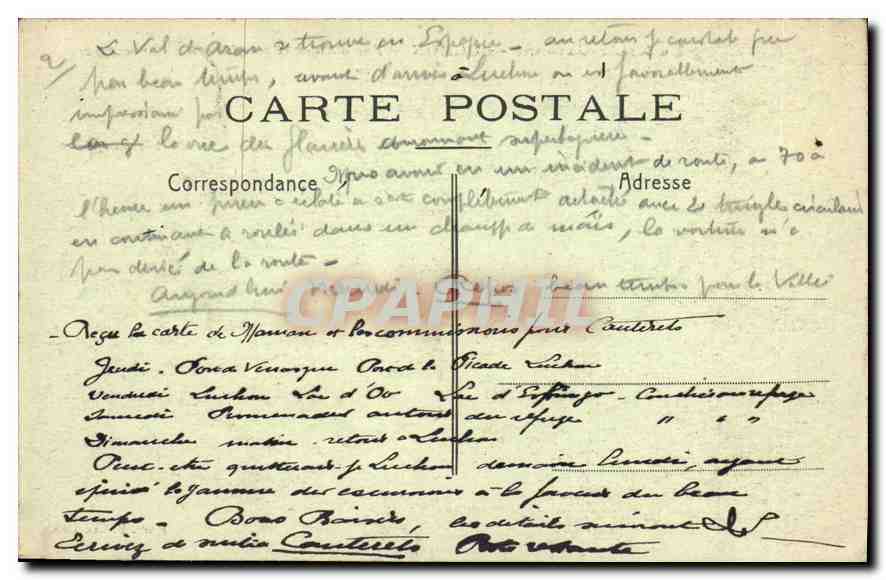 2/ Le Val d'Aran se trouve en Espagne - au retour je
pas beau temps, avant d'arriver à Luchon on est favorablement
impressionné par
CARTE POSTALE
la vue des glaciers superbes
Correspondance Nous avons eu un incident de route, à 70 à Adresse
l'heure un pneu a éclaté a s'est complètement détaché avec la tringle circulaire
en continuant à rouler dans un champ de maïs, la voiture n'a
pas dévié de la route -
Aujourd'hui Mercredi Repos beau temps pour la Vallée
CPAPHIL
- Reçu la carte de Maman et les commissions pour Cauterets
Jeudi - Port de Venasque Port de la Picade Luchon
Vendredi Luchon Lac d'Oo Lac d'Espingo - Coucher au refuge
Samedi Promenades autour du refuge " " "
Dimanche matin - retour à Luchon
Peut-être quitterais-je Luchon demain lundi, ayant
épuisé la gamme des excursions à la faveur du beau
temps - Bons Baisers, les détails suivront
Ecrivez de suite Cauterets Poste restante